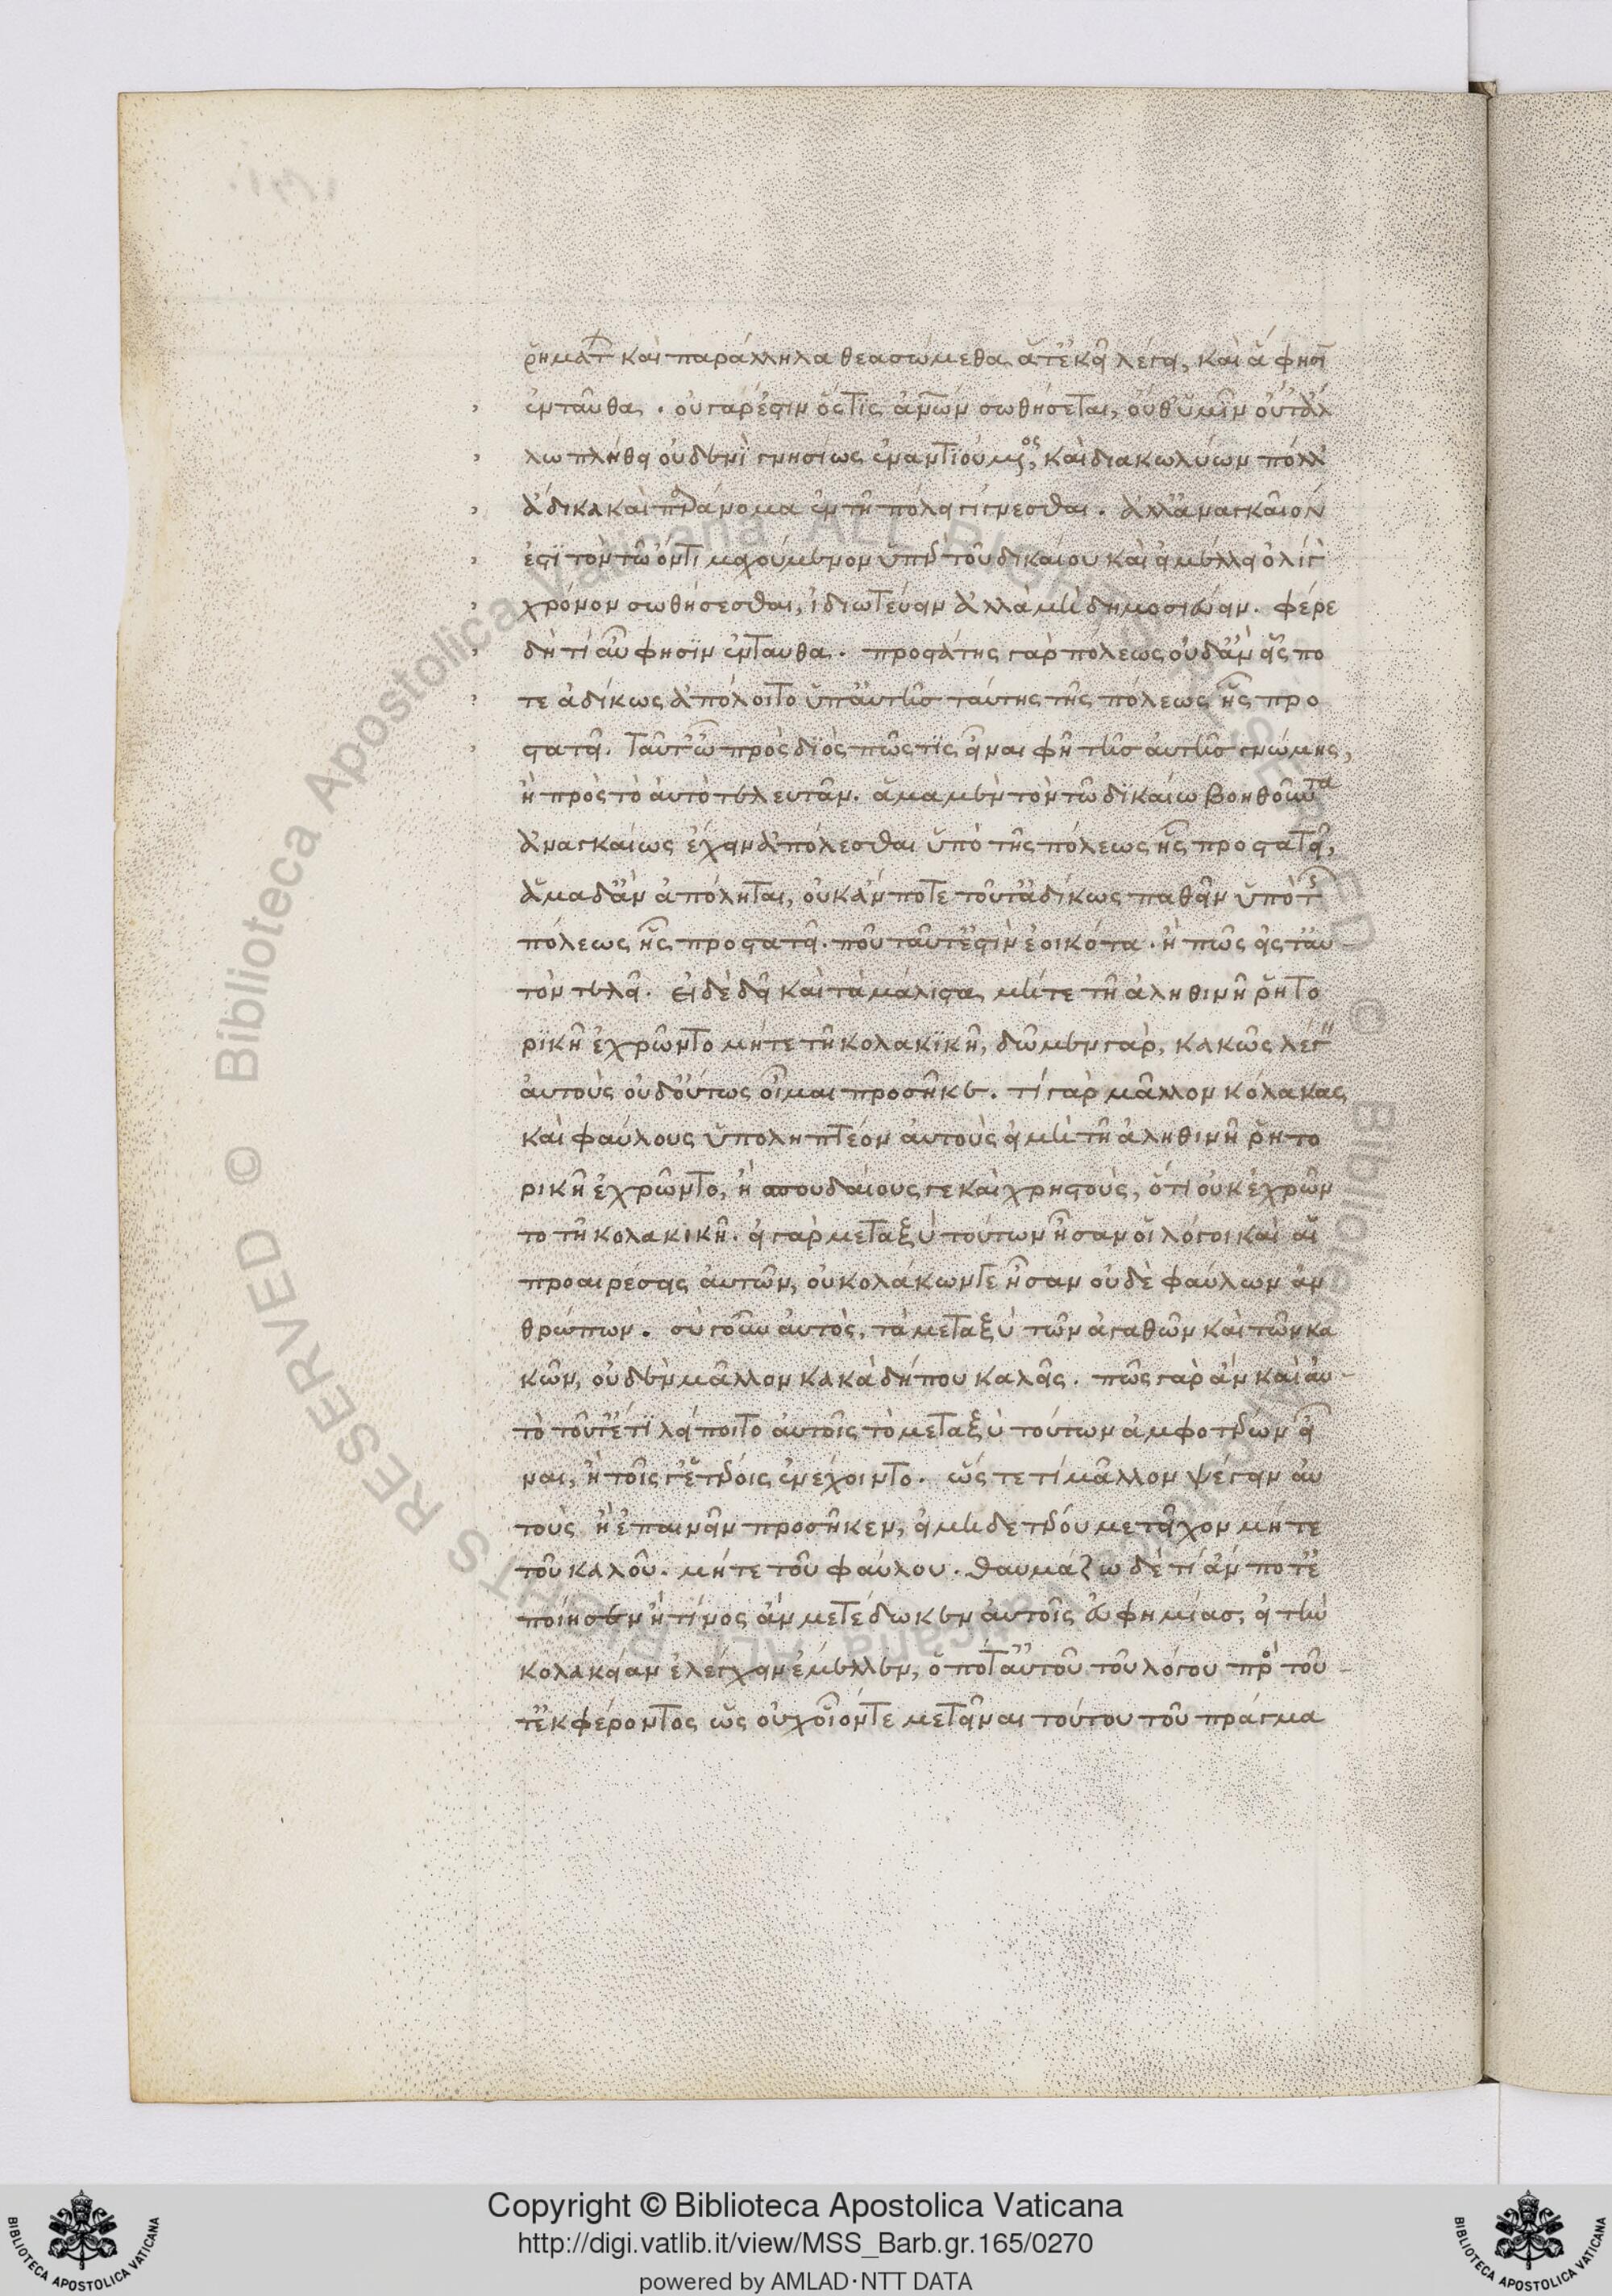 ῥημάτων καὶ παράλληλα θεασώμεθα ἅ τ' ἐκεῖ λέγει, καὶ ἅ φησιν
ἐνταῦθα. οὐ γάρ ἐστιν ὅστις ἀνθρώπων σωθήσεται, οὔθ' ὑμῖν οὔτ' ἄλ
λω πλήθει οὐδενὶ γνησίως ἐναντιούμενος, καὶ διακωλύων πόλλ'
ἄδικα καὶ παράνομα ἐν τῆ πόλει γίγνεσθαι. ἀλλ' ἀναγκαῖόν
ἐστι τὸν τῶ ὄντι μαχούμενον ὑπὲρ τοῦ δικαίου καὶ εἰ μέλλει ὀλίγον
χρόνον σωθήσεσθαι, ἰδιωτεύειν ἀλλὰ μὴ δημοσιεύειν. φέρε
δὴ τί αὖ φησὶν ἐνταυθα. προστάτης γὰρ πόλεως οὐδ' ἂν εἷς πο
τε ἀδίκως ἀπόλοιτο ὑπ' αὐτῆς ταύτης τῆς πόλεως ἧς προ
στατεῖ. ταῦτ' ὦ πρὸς διὸς πῶς τὶς εἶναι φῆ τῆς αὐτῆς γνώμης,
ἢ πρὸς τὸ ἀυτὸ τελευτᾶν. ἅμα μὲν τὸν τῶ δικαίω βοηθοῦντα
ἀναγκαίως ἔχειν ἀπόλεσθαι ὑπὸ τῆς πόλεως ἧς προστατεῖ,
ἅμα δ' ἂν ἀπόληται, οὐκ ἄν ποτε τοῦτ' ἀδίκως παθεῖν ὑπὸ τῆς
πόλεως ἧς προστατεῖ. ποῦ ταῦτ' ἐστὶν ἐοικότα. ἢ πῶς εἰς τ' αυ
τὸν τελεῖ. εἰ δὲ δεῖ καὶ τὰ μάλιστα μήτε τῆ ἀληθινῆ ῥητο
ρικῆ ἐχρῶντο μήτε τῆ κολακικῆ, δῶμεν γὰρ, κακῶς λέγειν
ἀυτοὺς οὐδ' οὕτως οἶμαι προσῆκε. τί γὰρ μᾶλλον κόλακας
καὶ φαύλους ὑποληπτέον ἀυτοὺς εἰ μὴ τῆ ἀληθινῆ ῥητο
ρικῆ ἐχρῶντο, ἢ σπουδαίους γε καὶ χρηστοὺς, ὅτι οὐκ ἐχρῶν
το τῆ κολακικῆ. εἰ γὰρ μεταξὺ τούτων ἦσαν οἱ λόγοι καὶ αἱ
προαιρέσεις ἀυτῶν, οὐ κολάκων γε ἦσαν οὐδὲ φαύλων ἀν
θρώπων. σὺ γοῦν ἀυτὸς, τὰ μεταξὺ τῶν ἀγαθῶν καὶ τῶν κα
κῶν, οὐδὲν μᾶλλον κακὰ δήπου καλεῖς. πῶς γὰρ ἂν καὶ ἀυ
τὸ τοῦτ' ἔτι λείποιτο ἀυτοῖς τὸ μεταξὺ τούτων ἀμφοτέρων εἶ
ναι, ἢ τοῖς γ' ἑτέροις ἐνέχοιντο. ὥς τε τί μᾶλλον ψέγειν ἀυ
τοὺς ἢ ἐπαινεῖν προσῆκεν, εἰ μηδετέρου μετεῖχον μήτε
τοῦ καλοῦ. μήτε τοῦ φαύλου. θαυμάζω δὲ τί ἄν ποτ' ἐ
ποίησεν ἢ τίνος ἂν μετέδωκεν ἀυτοῖς εὐφημίας, εἰ τὴν
κολακείαν ἐλέγχειν ἔμελλεν, ὁπότ' ἀυτοῦ τοῦ λόγου πρὸ τοῦ
τ' ἐκφέροντος ὡς οὐχ οἷόν τε μετεῖναι τούτου τοῦ πράγμα
Copyright © Biblioteca Apostolica Vaticana
http://digi.vatlib.it/view/MSS_Barb.gr.165/0270
powered by AMLAD·NTT DATA